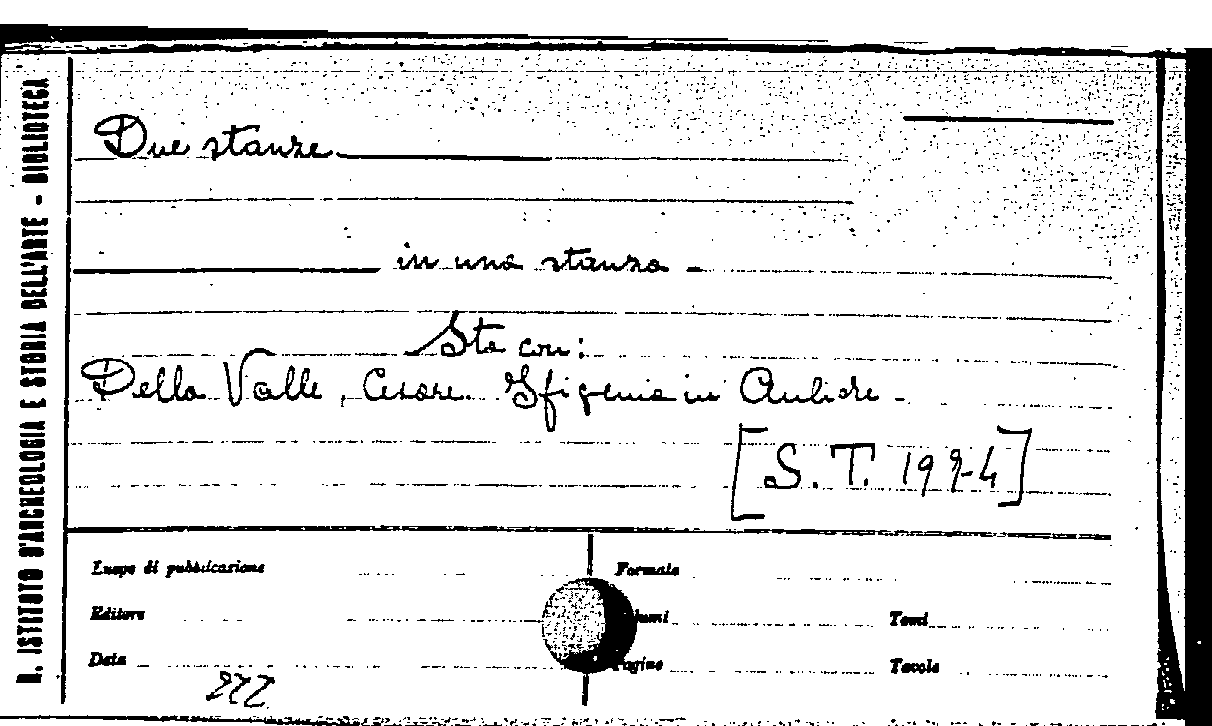 R. ISTITUTO D'ARCHEOLOGIA E STORIA DELL'ARTE - BIBLIOTECA
Due stanze
in una stanza -
Sta con:
Della Valle, Cesare. Ifigenia in Aulide -
[S. T. 199-4]
Luogo di pubblicazione
Formato
Editore
Volumi
Tomi
Data
Pagine
Tavole